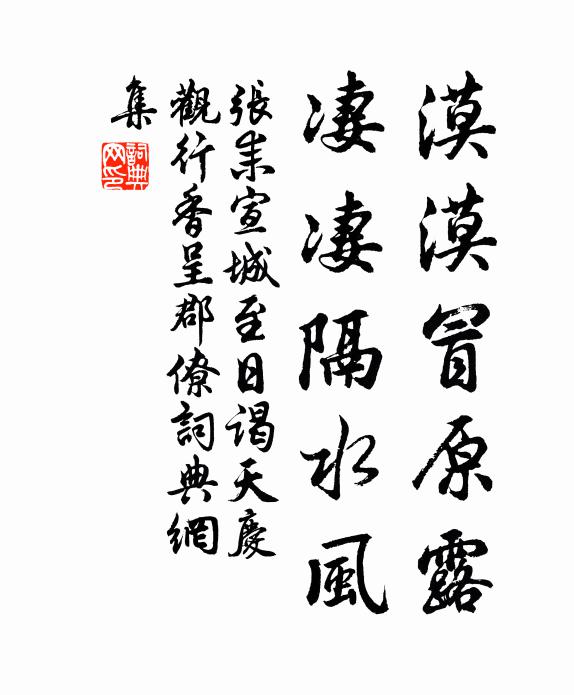 漠漠冒原露
凄凄隔水風
張耒宣城至日謁天慶
觀行香呈郡僚詞典網
集
詞典
网印